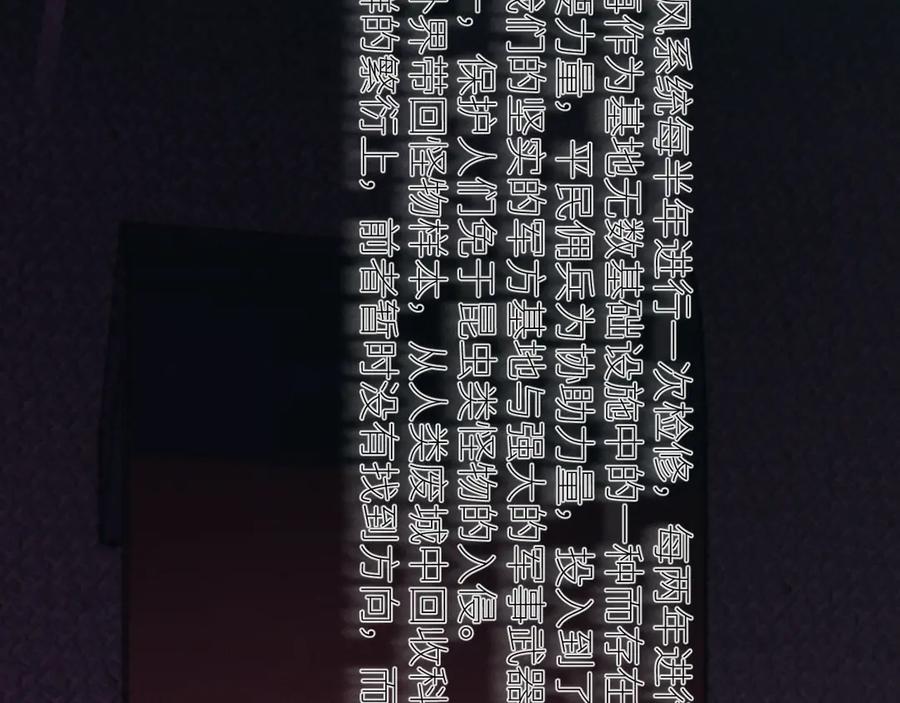 风系统每半年进行一次检修，每两年进行
作为基地无数基础设施中的一种而存在
力量，平民佣兵为协助力量，投入到了
我们的坚实的军方基地与强大的军事武器
，保护人们免于昆虫类怪物的入侵。
外界带回怪物样本，从人类废城中回收科
的繁衍上，前者暂时没有找到方向，而